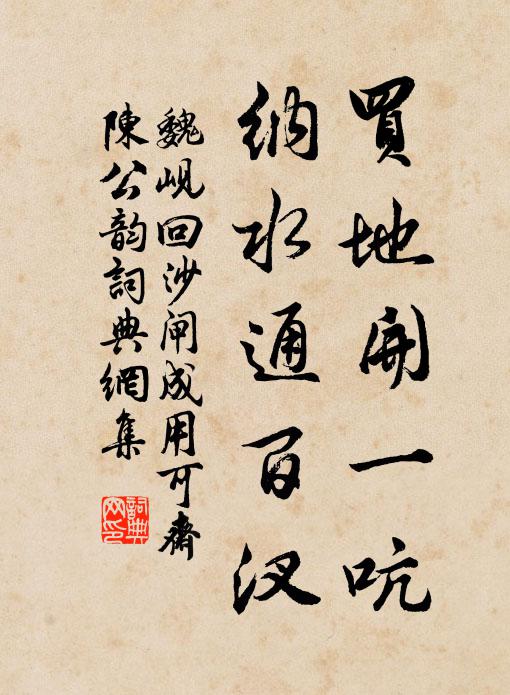 買地開一吭
納水通百汊
魏峴回沙閘成用可齋
陳公韵詞典網集
詞典网印